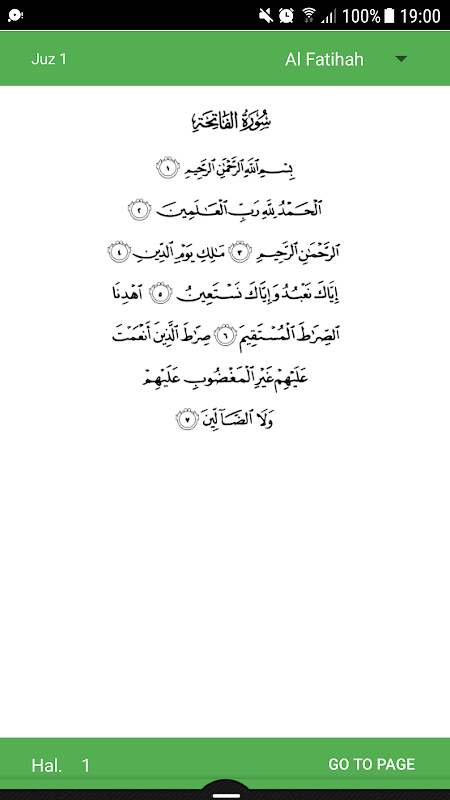 100% 19:00
Juz 1 Al Fatihah
سُورَةُ الفَاتِحَةِ
بِسْمِ اللَّهِ الرَّحْمَٰنِ الرَّحِيمِ ١
الْحَمْدُ لِلَّهِ رَبِّ الْعَالَمِينَ ٢
الرَّحْمَٰنِ الرَّحِيمِ ٣ مَالِكِ يَوْمِ الدِّينِ ٤
إِيَّاكَ نَعْبُدُ وَإِيَّاكَ نَسْتَعِينُ ٥ اهْدِنَا
الصِّرَاطَ الْمُسْتَقِيمَ ٦ صِرَاطَ الَّذِينَ أَنْعَمْتَ
عَلَيْهِمْ غَيْرِ الْمَغْضُوبِ عَلَيْهِمْ
وَلَا الضَّالِّينَ ٧
Hal. 1 GO TO PAGE